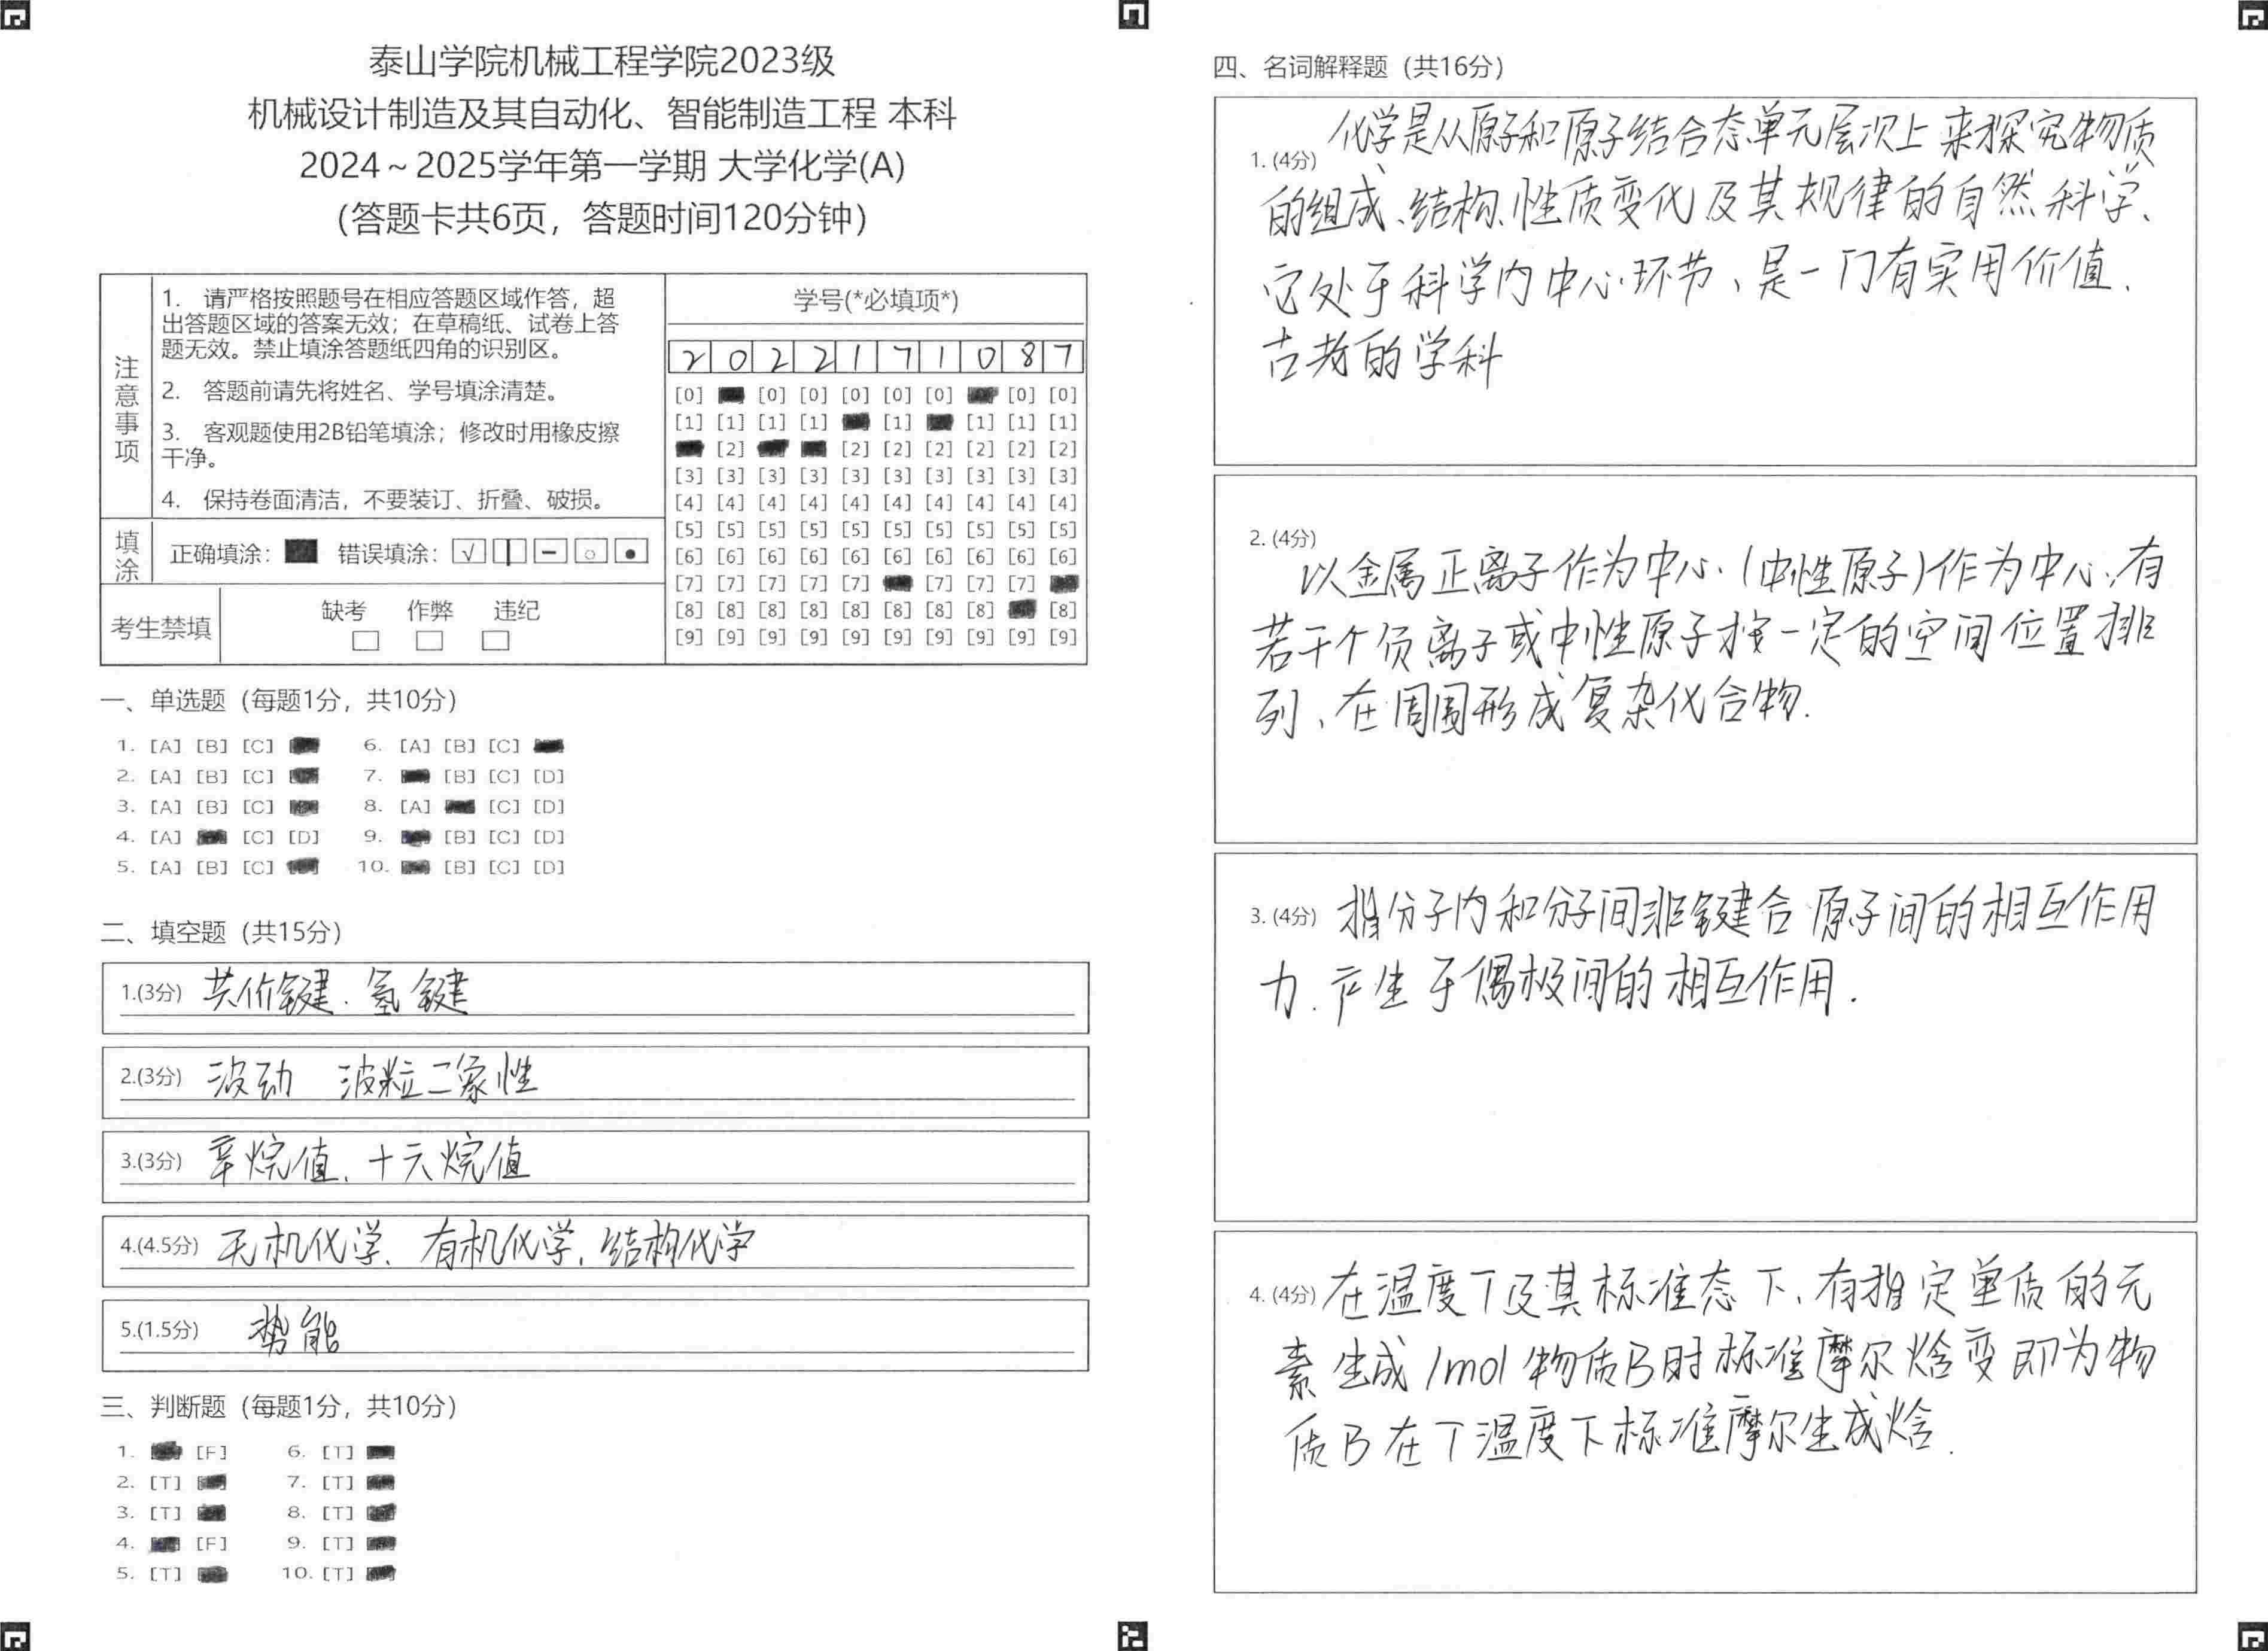 泰山学院机械工程学院2023级
机械设计制造及其自动化、智能制造工程 本科
2024～2025学年第一学期 大学化学(A)
(答题卡共6页，答题时间120分钟)
注意事项
1. 请严格按照题号在相应答题区域作答，超
出答题区域的答案无效；在草稿纸、试卷上答
题无效。禁止填涂答题纸四角的识别区。
2. 答题前请先将姓名、学号填涂清楚。
3. 客观题使用2B铅笔填涂；修改时用橡皮擦
干净。
4. 保持卷面清洁，不要装订、折叠、破损。
填涂
正确填涂： 错误填涂： √
考生禁填
缺考 作弊 违纪
学号(*必填项*)
2 0 2 2 1 7 1 0 8 7
[0] [0] [0] [0] [0] [0] [0] [0]
[1] [1] [1] [1] [1] [1] [1] [1]
[2] [2] [2] [2] [2] [2] [2]
[3] [3] [3] [3] [3] [3] [3] [3] [3] [3]
[4] [4] [4] [4] [4] [4] [4] [4] [4] [4]
[5] [5] [5] [5] [5] [5] [5] [5] [5] [5]
[6] [6] [6] [6] [6] [6] [6] [6] [6] [6]
[7] [7] [7] [7] [7] [7] [7] [7]
[8] [8] [8] [8] [8] [8] [8] [8] [8]
[9] [9] [9] [9] [9] [9] [9] [9] [9] [9]
一、单选题（每题1分，共10分）
1. [A] [B] [C] 6. [A] [B] [C]
2. [A] [B] [C] 7. [B] [C] [D]
3. [A] [B] [C] 8. [A] [C] [D]
4. [A] [C] [D] 9. [B] [C] [D]
5. [A] [B] [C] 10. [B] [C] [D]
二、填空题（共15分）
1.(3分) 共价键．氢键
2.(3分) 波动 波粒二象性
3.(3分) 辛烷值、十六烷值
4.(4.5分) 无机化学、有机化学、结构化学
5.(1.5分) 势能
三、判断题（每题1分，共10分）
1. [F] 6. [T]
2. [T] 7. [T]
3. [T] 8. [T]
4. [F] 9. [T]
5. [T] 10. [T]
四、名词解释题（共16分）
1. (4分) 化学是从原子和原子结合态单元层次上来探究物质
的组成、结构、性质变化及其规律的自然科学、
它处于科学内中心环节、是一门有实用价值、
古老的学科
2. (4分)
以金属正离子作为中心（中性原子）作为中心、有
若干个负离子或中性原子按一定的空间位置排
列、在周围形成复杂化合物．
3. (4分) 指分子内和分子间非键合原子间的相互作用
力．产生于偶极间的相互作用．
4. (4分) 在温度T及其标准态下、有指定单质的元
素生成1mol物质B时标准摩尔焓变即为物
质B在T温度下标准摩尔生成焓．